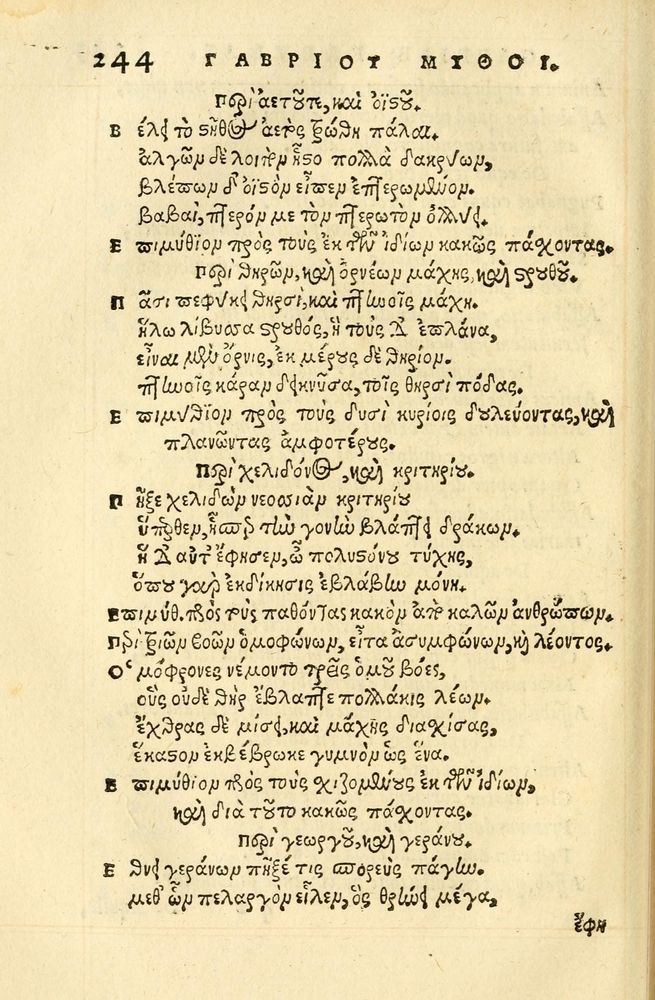 244 ΓΑΒΡΙΟΥ ΜΥΘΟΙ.
Περὶ ἀετοῦτε, καὶ ὀϊστοῦ.
Βέλει τὸ στῆθος ἀετὸς ἐξώθη πάλαι.
ἀλγῶν δὲ λοιπὸν ἧστο πολλὰ δακρύων,
βλέπων δ' ὀϊστὸν εἶπεν ἐπτερωμένον.
βαβαὶ, πτερόν με τὸν πτερωτὸν ὀλλύει.
Ἐπιμύθιον πρὸς τοὺς ἐκ τῶν ἰδίων κακῶς πάσχοντας.
Περὶ θηρῶν, καὶ ὀρνέων μάχης, καὶ στρουθοῦ.
Πᾶσι πεφύκει θηρσὶ, καὶ πτηνοῖς μάχη.
ἥλω λίβυσσα στρουθός, ἣ τοὺς δὲ ἐπλάνα,
εἶναι μὲν ὄρνις, ἐκ μέρους δὲ θηρίον.
πτηνοῖς κάραν δεικνῦσα, τοῖς θηρσὶ πόδας.
Ἐπιμύθιον πρὸς τοὺς δυσὶ κυρίοις δουλεύοντας, καὶ
πλανῶντας ἀμφοτέρους.
Περὶ χελιδόνος, καὶ κριτηρίου.
Πῆξε χελιδὼν νεοσσιὰν κριτηρίου
ὕπερθεν, ἧσπερ τὴν γονὴν βλάπτει δράκων.
ἣ δὲ αὖτ' ἔφησεν, ὦ πολυστόνου τύχης,
ὅπου γὰρ ἐκδίκησις ἐβλάβην μόνη.
Ἐπιμύθ. πρὸς τοὺς παθόντας κακὸν ἀπὸ καλῶν ἀνθρώπων.
Περὶ τριῶν βοῶν ὁμοφώνων, εἶτα ἀσυμφώνων, καὶ λέοντος.
Ὁμόφρονες νέμοντο τρεῖς ὁμοῦ βόες,
οὓς οὐδὲ θὴρ ἔβλαπτε πολλάκις λέων.
ἔχθρας δὲ μίσει, καὶ μάχης διασχίσας,
ἕκαστον ἐκβέβρωκε γυμνὸν ὡς ἕνα.
Ἐπιμύθιον πρὸς τοὺς σχιζομένους ἐκ τῶν ἰδίων,
καὶ διὰ τοῦτο κακῶς πάσχοντας.
Περὶ γεωργοῦ, καὶ γεράνου.
Ἔθνει γεράνων πῆξέ τις σπορεὺς πάγην.
μεθ' ὧν πελαργὸν εἷλεν, ὃς θρηνεῖ μέγα,
ἔφη